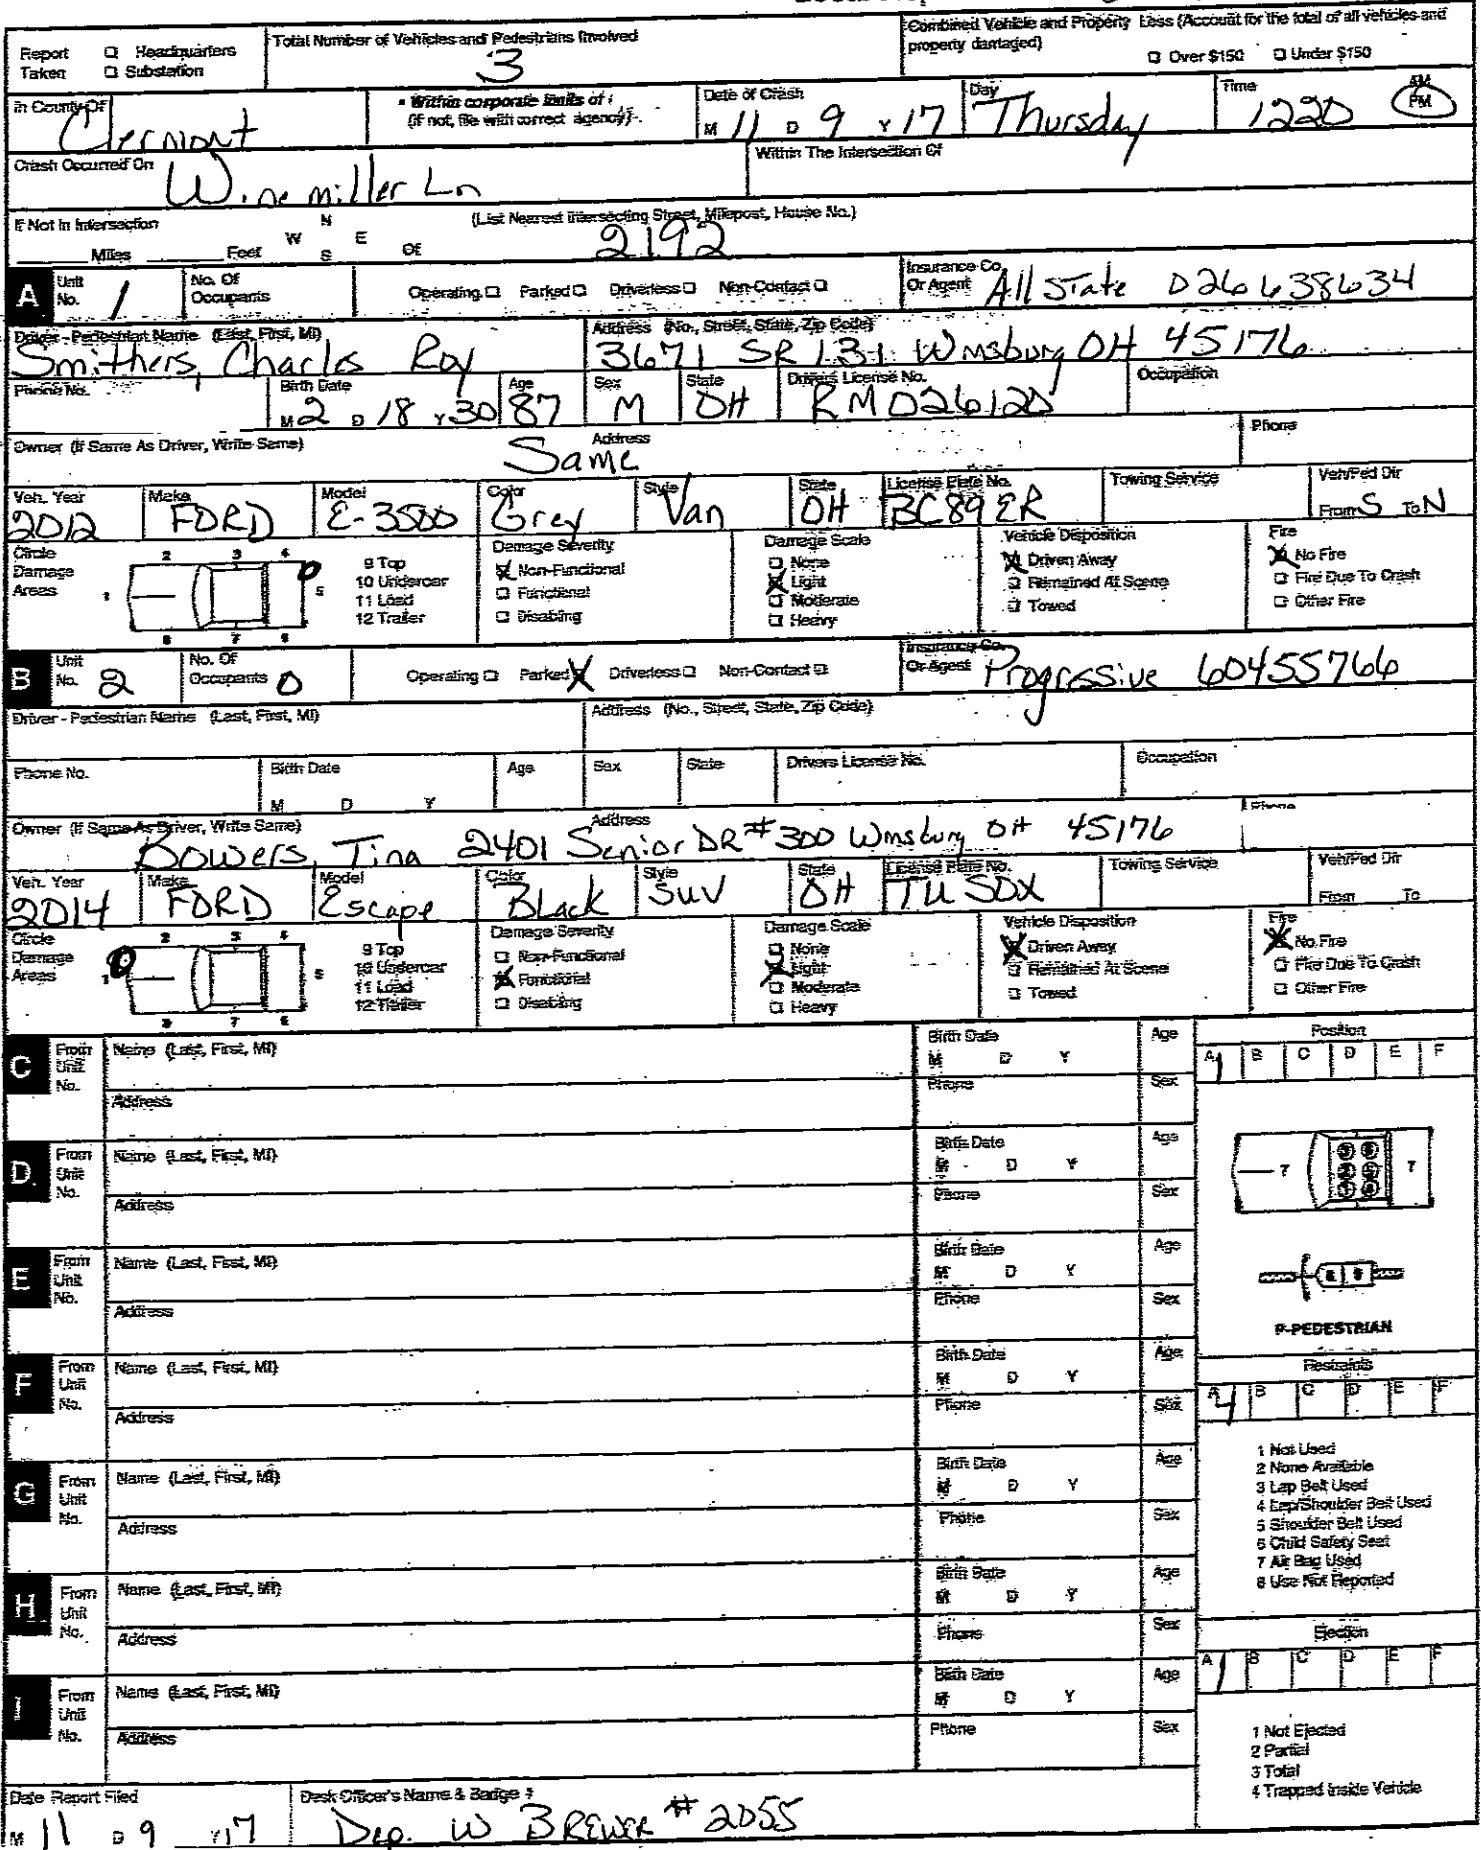 Report Taken ☐ Headquarters ☐ Substation
Total Number of Vehicles and Pedestrians Involved 3
Combined Vehicle and Property Loss (Account for the total of all vehicles and property damaged) ☐ Over $150 ☐ Under $150
In County Of Clermont
• Within corporate limits of: (If not, file with correct agency)
Date of Crash M 11 D 9 Y 17
Day Thursday
Time 1220 AM PM
Crash Occurred On Winemiller Ln
Within The Intersection Of
If Not In Intersection ____ Miles ____ Feet N W E S Of
(List Nearest Intersecting Street, Milepost, House No.) 2192
A Unit No. 1
No. Of Occupants
Operating ☐ Parked ☐ Driverless ☐ Non-Contact ☐
Insurance Co. Or Agent AllState 026638634
Driver - Pedestrian Name (Last, First, MI) Smithers, Charles Roy
Address (No., Street, State, Zip Code) 3671 SR 131 Wmsburg OH 45176
Phone No.
Birth Date M 2 D 18 Y 30
Age 87
Sex M
State OH
Drivers License No. RM026120
Occupation
Owner (If Same As Driver, Write Same) Address Same
Phone
Veh. Year 2012
Make FORD
Model E-3500
Color Grey
Style Van
State OH
License Plate No. BC89ER
Towing Service
Veh/Ped Dir From S To N
Circle Damage Areas 1 2 3 4 5 6 7 8
9 Top
10 Undercar
11 Load
12 Trailer
Damage Severity
☒ Non-Functional
☐ Functional
☐ Disabling
Damage Scale
☐ None
☒ Light
☐ Moderate
☐ Heavy
Vehicle Disposition
☒ Driven Away
☐ Remained At Scene
☐ Towed
Fire
☒ No Fire
☐ Fire Due To Crash
☐ Other Fire
B Unit No. 2
No. Of Occupants 0
Operating ☐ Parked ☒ Driverless ☐ Non-Contact ☐
Insurance Co. Or Agent Progressive 60455766
Driver - Pedestrian Name (Last, First, MI)
Address (No., Street, State, Zip Code)
Phone No.
Birth Date M D Y
Age
Sex
State
Drivers License No.
Occupation
Owner (If Same As Driver, Write Same) Address Bowers, Tina 2401 Senior DR #300 Wmsburg OH 45176
Phone
Veh. Year 2014
Make FORD
Model Escape
Color Black
Style SUV
State OH
License Plate No. TUSDX
Towing Service
Veh/Ped Dir From To
Circle Damage Areas 1 2 3 4 5 6 7 8
9 Top
10 Undercar
11 Load
12 Trailer
Damage Severity
☐ Non-Functional
☒ Functional
☐ Disabling
Damage Scale
☐ None
☒ Light
☐ Moderate
☐ Heavy
Vehicle Disposition
☒ Driven Away
☐ Remained At Scene
☐ Towed
Fire
☒ No Fire
☐ Fire Due To Crash
☐ Other Fire
C From Unit No. Name (Last, First, MI) Birth Date M D Y Age
Address Phone Sex
D. From Unit No. Name (Last, First, MI) Birth Date M D Y Age
Address Phone Sex
E From Unit No. Name (Last, First, MI) Birth Date M D Y Age
Address Phone Sex
F From Unit No. Name (Last, First, MI) Birth Date M D Y Age
Address Phone Sex
G From Unit No. Name (Last, First, MI) Birth Date M D Y Age
Address Phone Sex
H From Unit No. Name (Last, First, MI) Birth Date M D Y Age
Address Phone Sex
I From Unit No. Name (Last, First, MI) Birth Date M D Y Age
Address Phone Sex
Position
A 1 B C D E F
7 3 6 2 5 1 4 7
8 9
P-PEDESTRIAN
Restraints
A 4 B C D E F
1 Not Used
2 None Available
3 Lap Belt Used
4 Lap/Shoulder Belt Used
5 Shoulder Belt Used
6 Child Safety Seat
7 Air Bag Used
8 Use Not Reported
Ejection
A 1 B C D E F
1 Not Ejected
2 Partial
3 Total
4 Trapped Inside Vehicle
Date Report Filed M 11 D 9 Y 17
Desk Officer's Name & Badge # Dep. W BREWER #2055